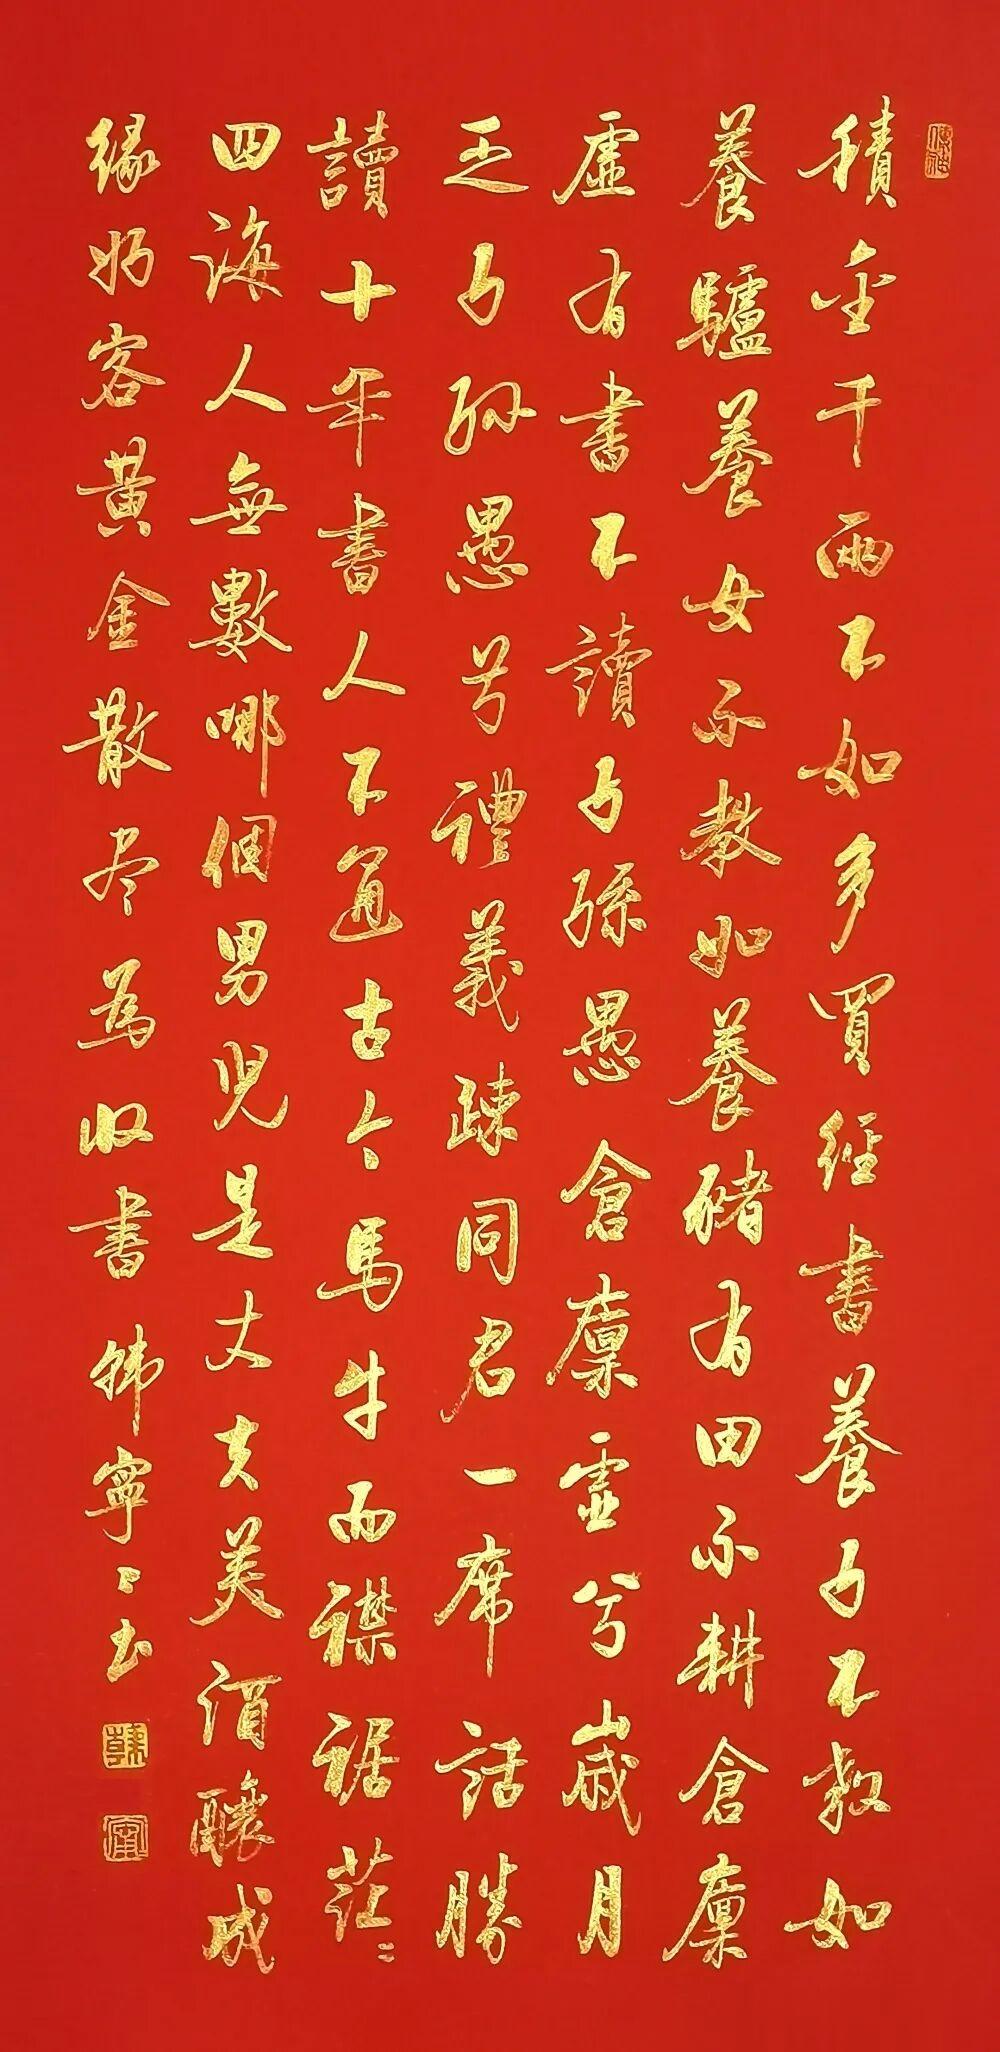 積金千兩不如多買經書養子不教如
養驢養女不教如養豬有田不耕倉廩
虛有書不讀子孫愚倉廩虛兮歲月
乏子孫愚兮禮義疎同君一席話勝
讀十年書人不通古今馬牛而襟裾茫〻
四海人無數哪個男児是丈夫美酒釀成
緣好客黄金散尽為収書韩寧寧书